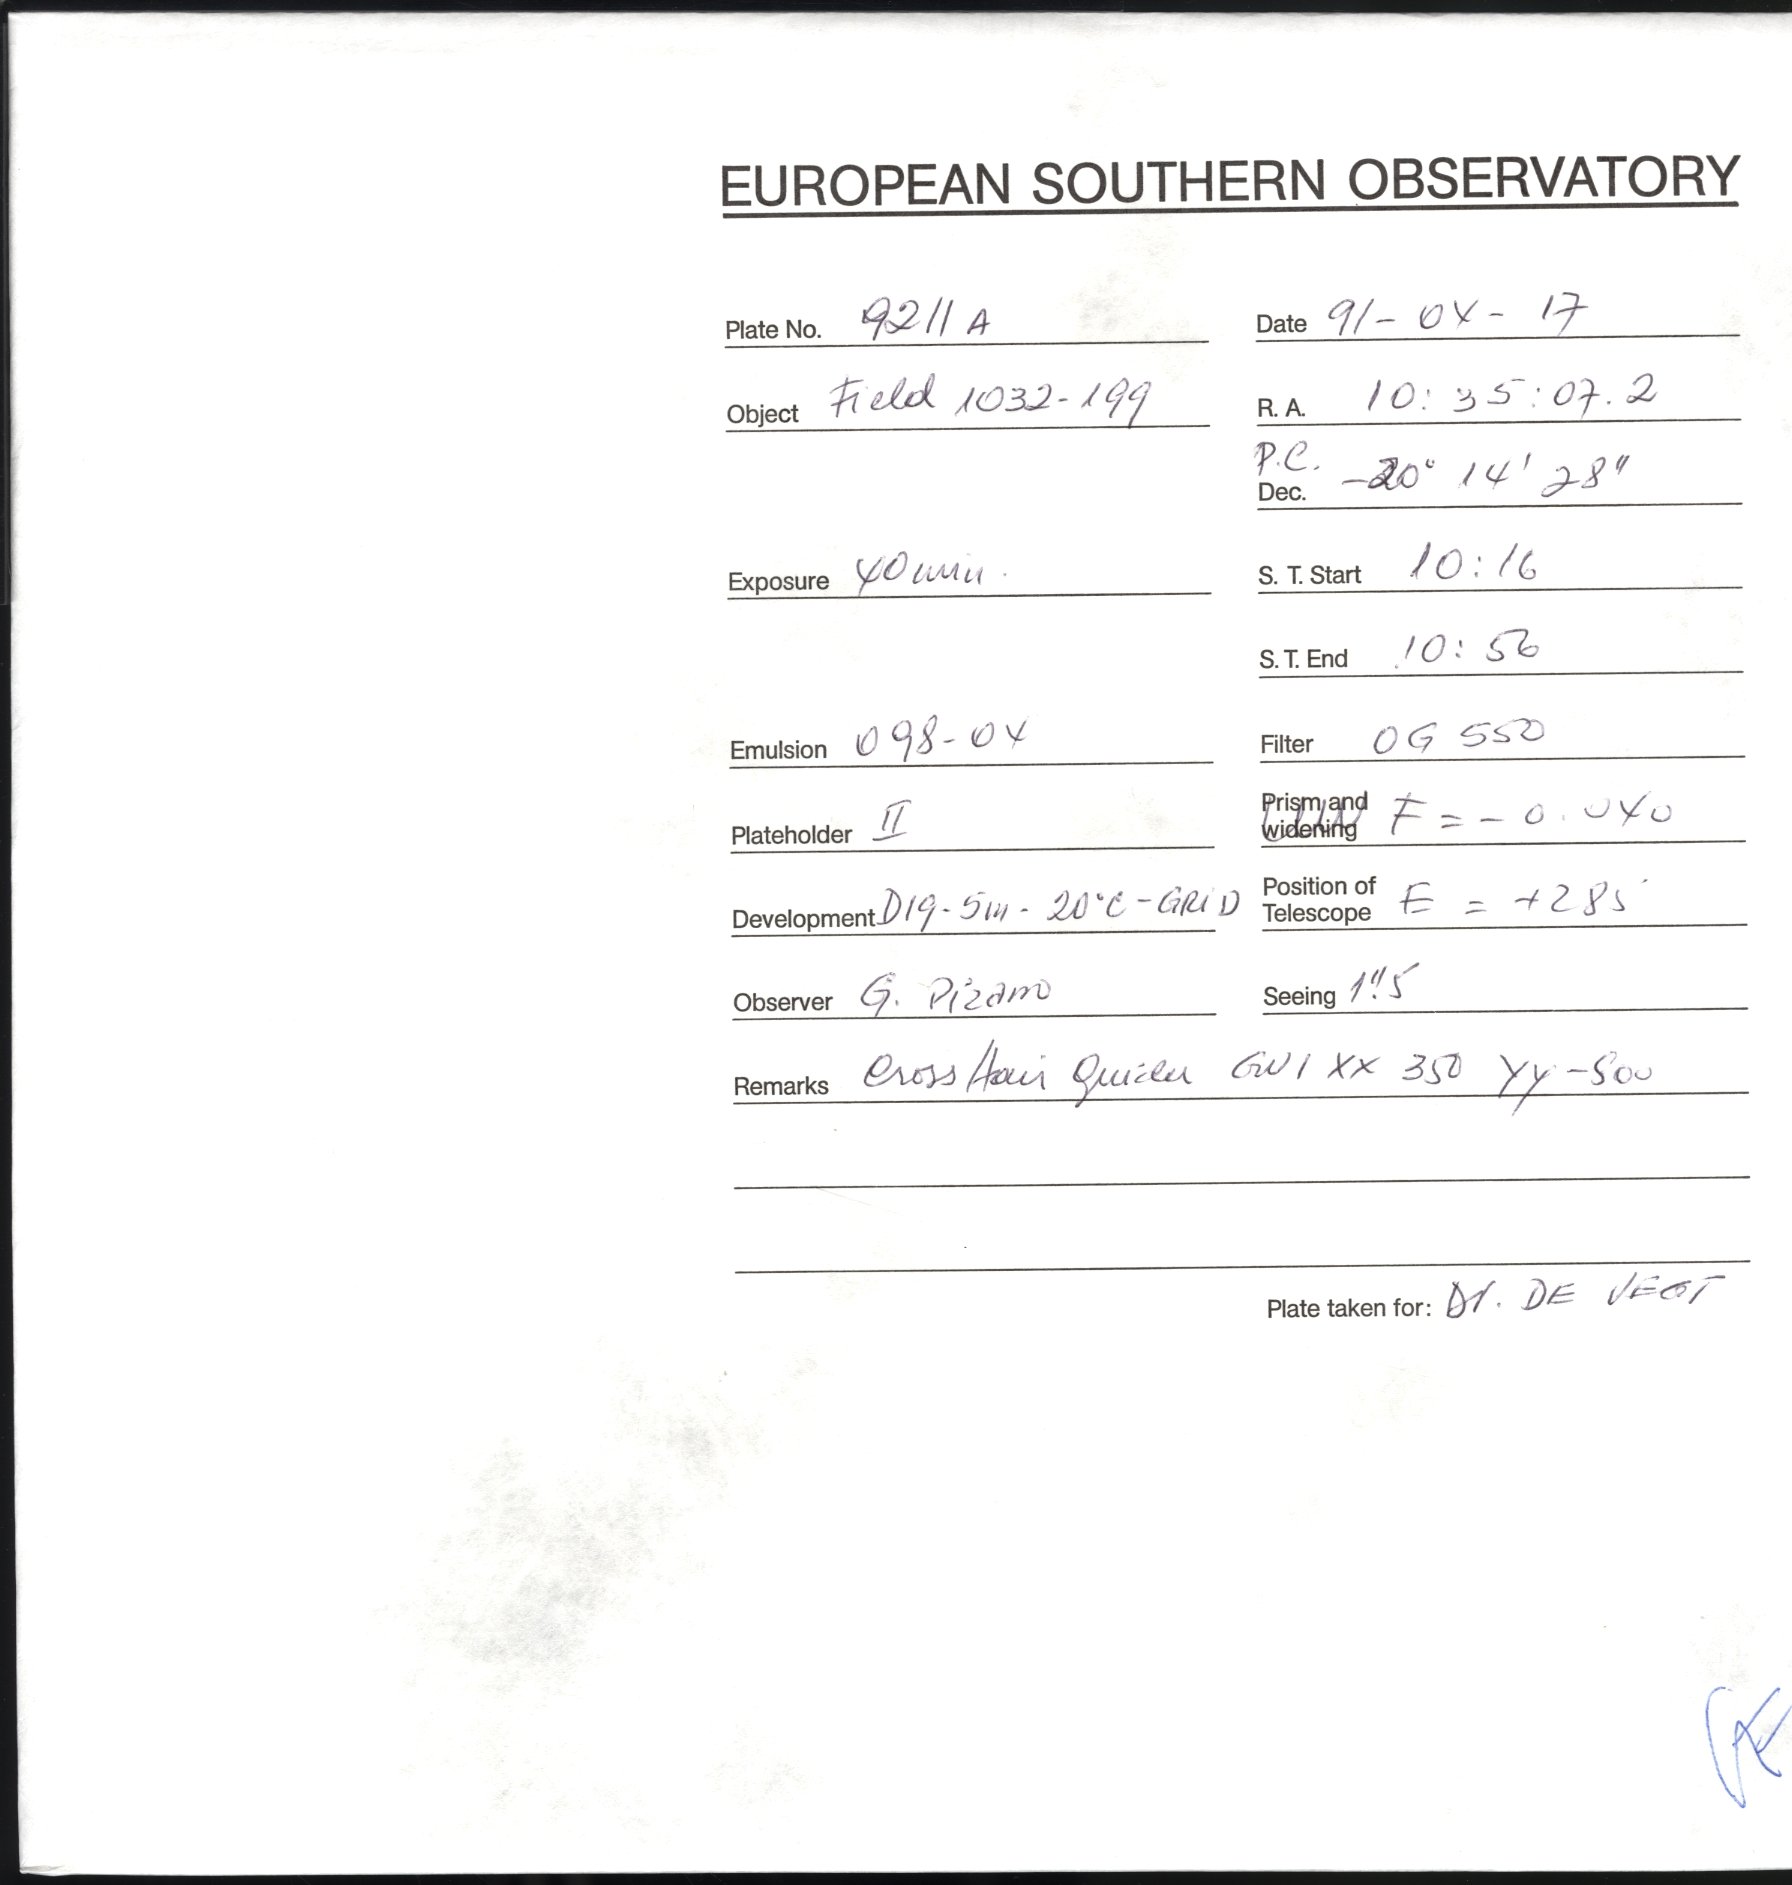 EUROPEAN SOUTHERN OBSERVATORY
Plate No. 9211 A
Date 91-04-17
Object Field 1032-199
R. A. 10:35:07.2
P.C.
Dec. -20° 14' 28"
Exposure 40 min.
S. T. Start 10:16
S. T. End 10:56
Emulsion 098-04
Filter OG 550
Plateholder II
Prism and widening F = - 0.040
Development D19-5m-20°C-GRID
Position of Telescope E = +285
Observer G. Pizarro
Seeing 1".5
Remarks Cross Hair Guider GW1 XX 350 YY -500
Plate taken for: Dr. DE VEGT